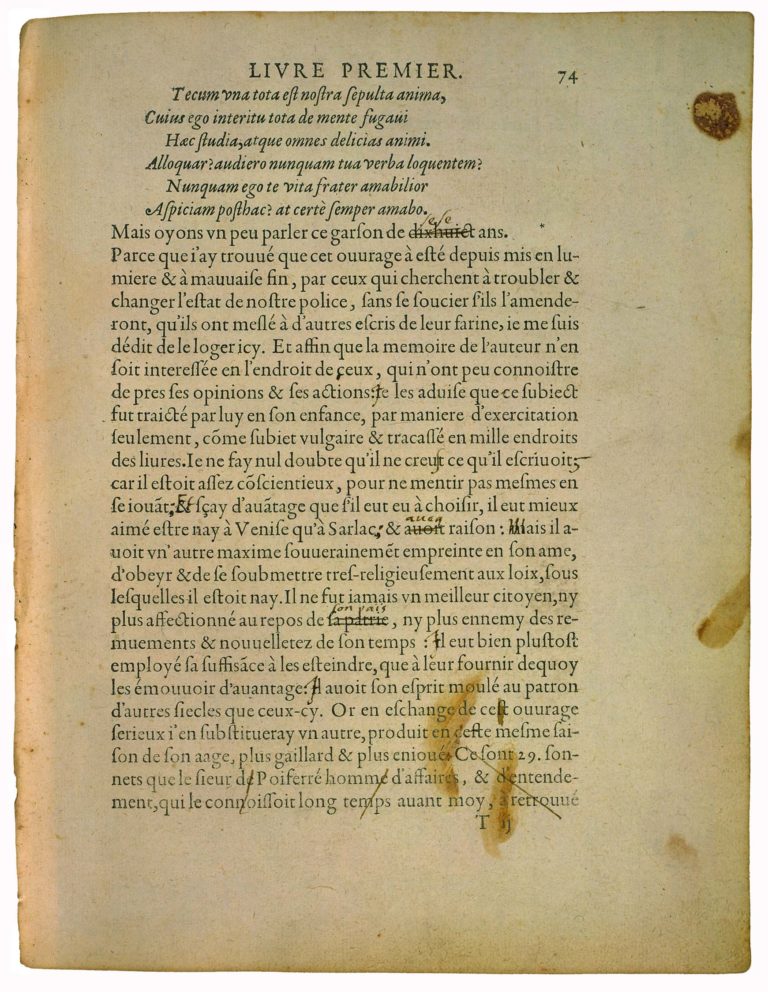 LIVRE PREMIER. 74
Tecum vna tota eſt noſtra ſepulta anima,
Cuius ego interitu tota de mente fugaui
Hæc ſtudia, atque omnes delicias animi.
Alloquar? audiero nunquam tua verba loquentem?
Nunquam ego te vita frater amabilior
Aſpiciam poſthac? at certè ſemper amabo.
ſeſe
Mais oyons vn peu parler ce garſon de dixhuict ans.
Parce que i'ay trouué que cet ouurage à eſté depuis mis en lu-
miere & à mauuaiſe fin, par ceux qui cherchent à troubler &
changer l'eſtat de noſtre police, ſans ſe ſoucier s'ils l'amende-
ront, qu'ils ont meſlé à d'autres eſcris de leur farine, ie me ſuis
dédit de le loger icy. Et affin que la memoire de l'auteur n'en
ſoit intereſſée en l'endroit de ceux, qui n'ont peu connoiſtre
de pres ſes opinions & ſes actions: Ie les aduiſe que ce ſubiect
fut traicté par luy en ſon enfance, par maniere d'exercitation
ſeulement, cõme ſubiet vulgaire & tracaſſé en mille endroits
des liures. Ie ne fay nul doubte qu'il ne creuſt ce qu'il eſcriuoit,
car il eſtoit aſſez cõſcientieux, pour ne mentir pas meſmes en
ſe iouãt; Et ſçay d'auãtage que s'il eut eu à choiſir, il eut mieux
aueq
aimé eſtre nay à Veniſe qu'à Sarlac; & auoit raiſon: Mais il a-
uoit vn' autre maxime ſouuerainemẽt empreinte en ſon ame,
d'obeyr & de ſe ſoubmettre tref-religieuſement aux loix, ſous
leſquelles il eſtoit nay. Il ne fut iamais vn meilleur citoyen, ny
ſon païs
plus affectionné au repos de ſa patrie, ny plus ennemy des re-
muements & nouuelletez de ſon temps: Il eut bien pluſtoſt
employé ſa ſuffiſãce à les eſteindre, que à leur fournir dequoy
les émouuoir d'auantage: Il auoit ſon eſprit moulé au patron
d'autres ſiecles que ceux-cy. Or en eſchange de ceſt ouurage
ſerieux i'en ſubſtitueray vn autre, produit en ceſte meſme ſai-
ſon de ſon aage, plus gaillard & plus enioué. Ce ſont 29. ſon-
nets que le ſieur de Poiferré homme d'affaires, & d'entende-
ment, qui le connoiſſoit long temps auant moy, a retrouué
T ij